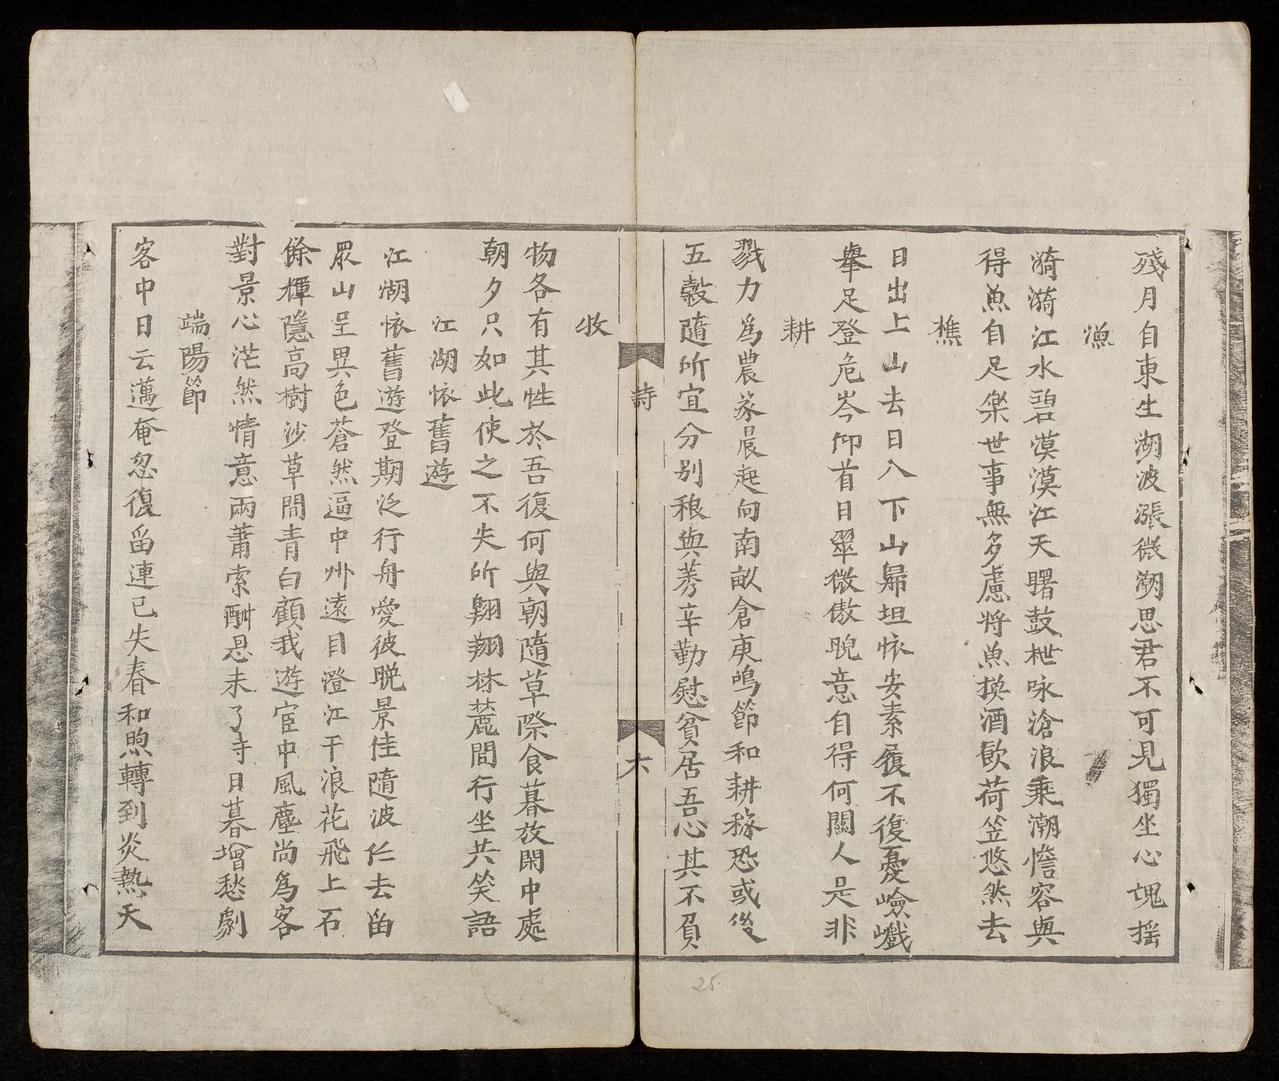 殘月自東生湖波漲微潮思君不可見獨坐心魂搖
漁
漪漪江水碧漠漠江天曙鼓枻咏滄浪乘潮憺容與
得魚自足樂世事無多慮將魚換酒歸荷笠悠然去
樵
日出上山去日入下山歸坦懷安素履不復憂嶮巇
舉足登危岑仰首日翠微傲睨意自得何關人是非
耕
戮力為農家晨起向南畝倉庚鳴節和耕稼恐或後
五穀隨所宜分別稂與莠辛勤慰貧居吾心其不負
詩
六
牧
物各有其性於吾復何與朝隨草際食暮放閑中處
朝夕只如此使之不失所翱翔林麓間行坐共笑語
江湖懷舊遊
江湖懷舊遊登期泛行舟愛彼晚景佳隨波任去留
眾山呈異色蒼然逼中州遠目澄江干浪花飛上石
餘輝隱高樹沙草間青白顧我遊宦中風塵尚為客
對景心茫然情意兩蕭索酬恩未了時日暮增愁劇
端陽節
客中日云邁奄忽復留連已失春和煦轉到炎熱天
25